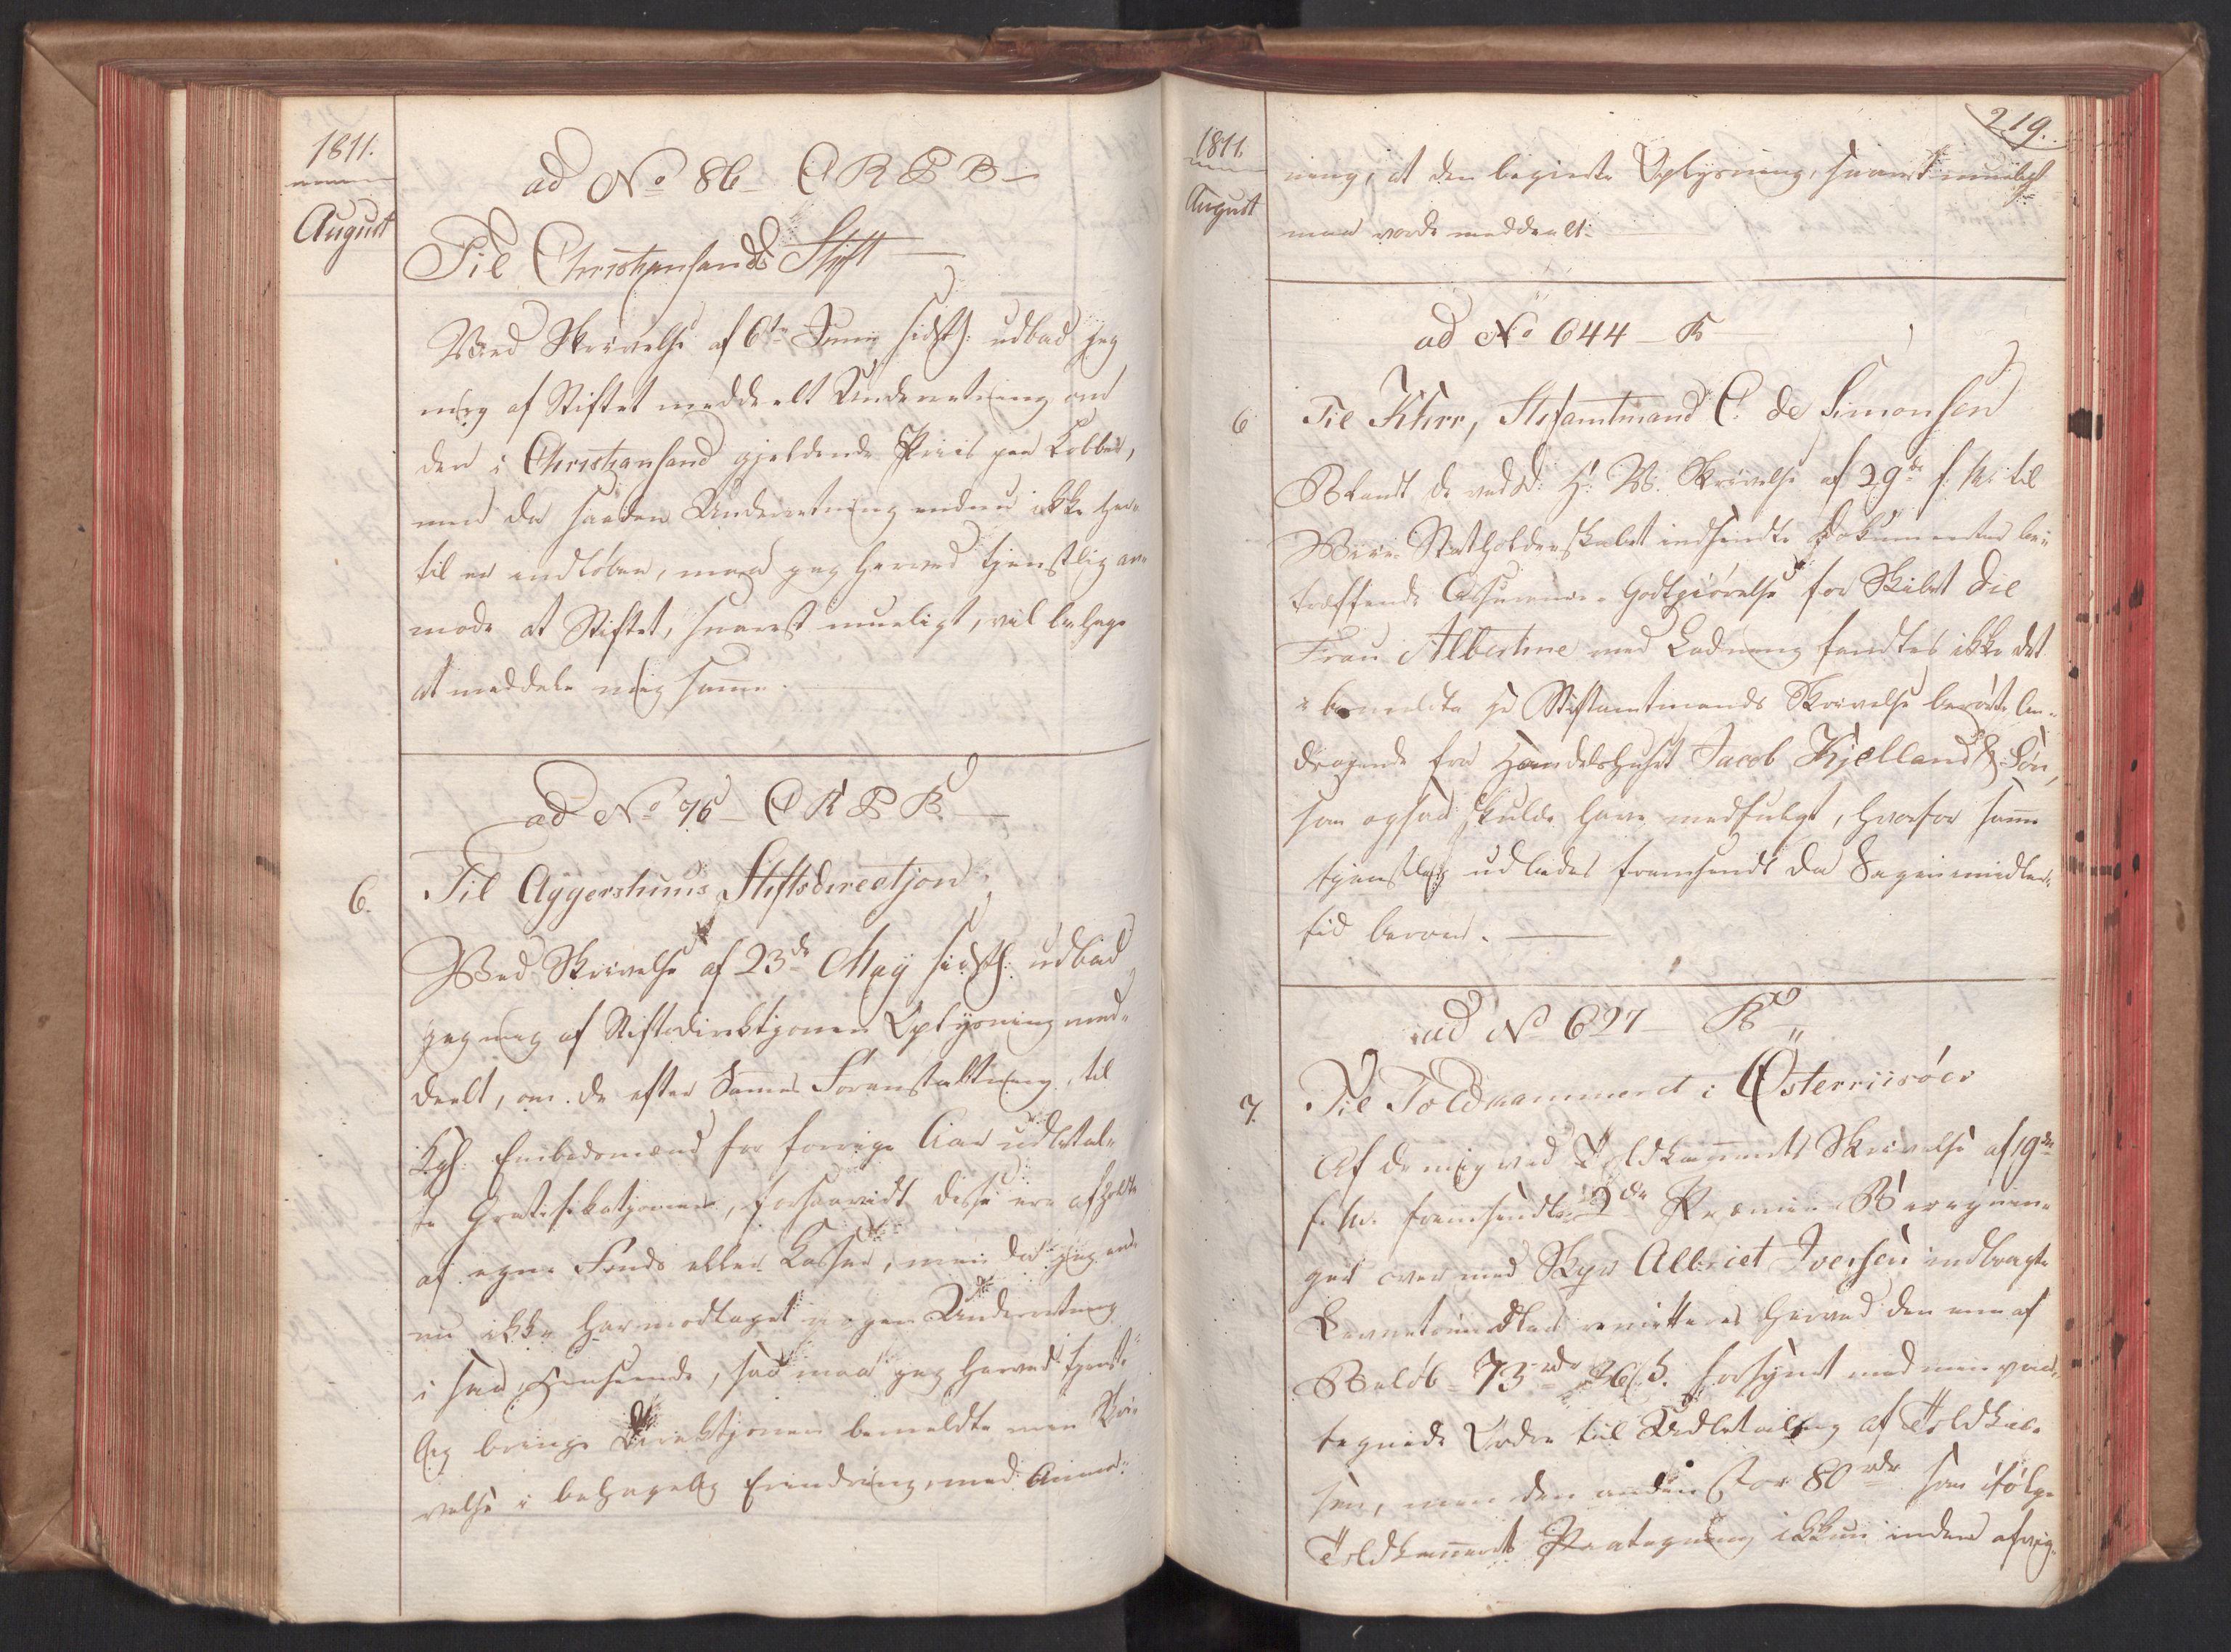 1811.
August
ad No 86 C R P B
Til Christiansands Stift
Ved Skrivelse af 6te Junii sidstl: udbad jeg
mig af Stiftet meddeelt Underretning om
den i Christiansand gjeldende Priis paa Kobber,
men da saadan Underretning endnu ikke her-
til er indløben, maa jeg herved tjenstlig an-
mode at Stiftet, snarest mueligt, vil behage
at meddele mig samme.
ad No 76 C R P B
6.
Til Aggershuus Stiftsdirectjon
Ved Skrivelse af 23de May sidstl: udbad
jeg mig af Stiftsdirektjonen Oplysning med-
deelt, om de efter Sammes Foranstaltning, til
Kgl: Embedsmænd for forrige Aar udbetal-
te Gratifikatjoner, forsaavidt disse ere afholdte
af egne Fonds eller Kasser, men da jeg end-
nu ikke har modtaget nogen Underretning
i saa Henseende, saa maa jeg herved tjenst-
lig bringe Direktjonen bemeldte min Skri-
velse i behagelig Erindring, med Anmod-
1811.
August
219.
ning, at den begjerte Oplysning, snarest mueligt
maa vorde meddeelt.
ad No 644 B
6
Til Khrr, Stiftamtmand C. de Simonsen
Blandt de ved D: H: V. Skrivelse af 29de f. M. til
Vice-Statholderskabet indsendte Dokumenter be-
træffende Assurance-Godtgiørelse for Skibet Die
Frau Albertine med Ladning fandtes ikke det
i bemeldte Hr Stiftamtmands Skrivelse berørte An-
dragende fra Handelshuset Jacob Kjelland & Søn,
som ogsaa skulde have medfulgt, hvorfor samme
tjenstlig udbedes fremsendt da Sagen imidler-
tid beroer.
ad No 697 B
7.
Til Toldkammeret i Østerriisøer
Af de mig ved Toldkammerets Skrivelse af 19de
f. M. fremsendte 2de Præmie-Beregnin-
ger over med Skpr Albriet Iversen indbragte
Levnetsmidler remitteres herved den ene af
Beløb 73 rdr 36 s. forsynet med min paa-
tegnede Ordre til Udbetaling af Toldkas-
sen, men den anden stor 80 rdr som ifølge
Toldkammerets Paategning ikkun inden afvig-